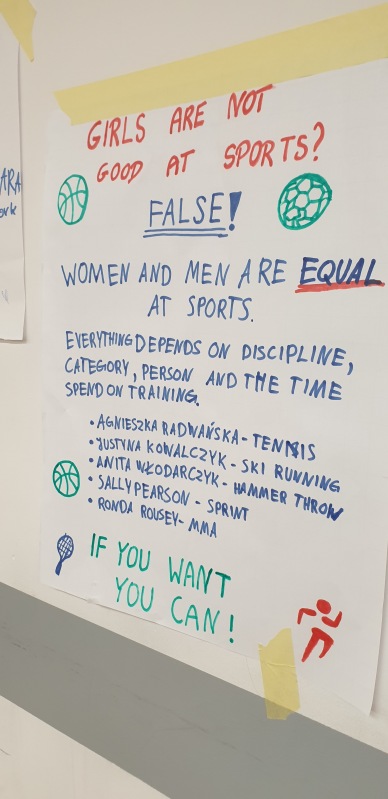 ARA
GIRLS ARE NOT
GOOD AT SPORTS?
FALSE!
WOMEN AND MEN ARE EQUAL
AT SPORTS.
EVERYTHING DEPENDS ON DISCIPLINE,
CATEGORY, PERSON AND THE TIME
SPEND ON TRAINING.
• AGNIESZKA RADWAŃSKA - TENNIS
• JUSTYNA KOWALCZYK - SKI RUNNING
• ANITA WŁODARCZYK - HAMMER THROW
• SALLY PEARSON - SPRINT
• RONDA ROUSEY - MMA
IF YOU WANT
YOU CAN!